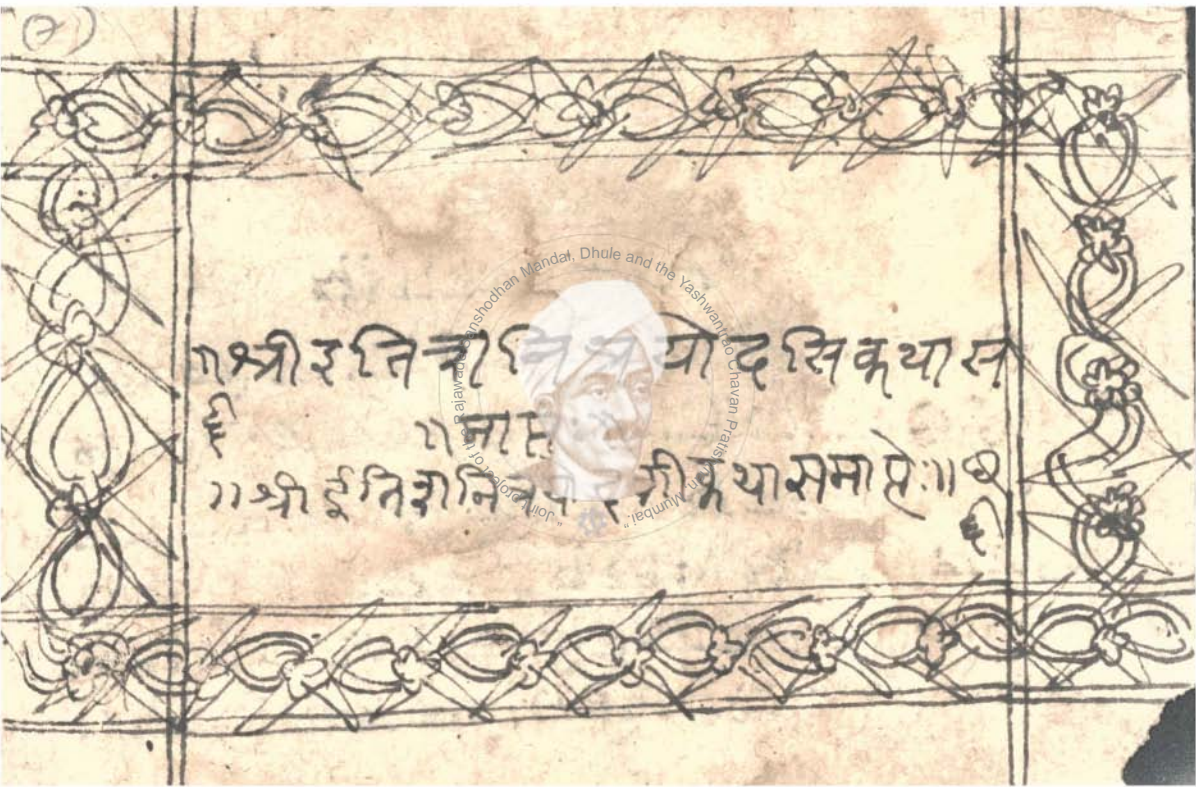 (२)
॥श्रीइतिशनि त्रयोदसिकथास
॥माप्त
॥श्रीईतिशनि कथासमाप्तेः॥
"Joint Project of the Rajawade Sanshodhan Mandal, Dhule and the Yashwantrao Chavan Pratishthan, Mumbai."